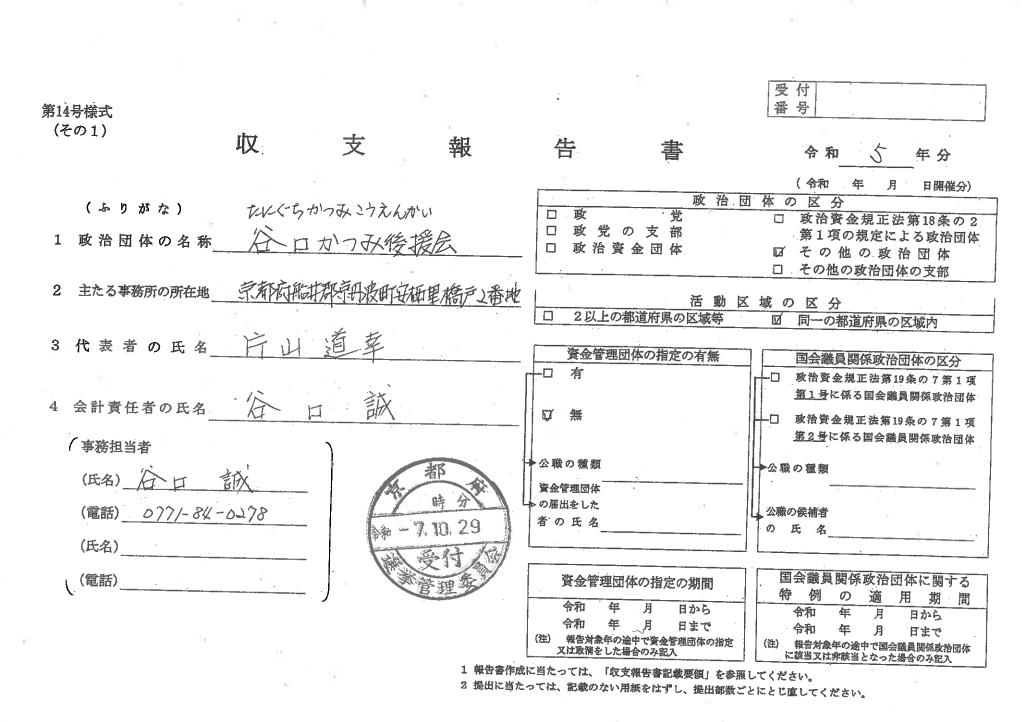 第14号様式
（その1）
受付
番号
収支報告書
令和 5 年分
（令和 年 月 日開催分）
（ふりがな） たにぐちかつみこうえんかい
1 政治団体の名称 谷口かつみ後援会
2 主たる事務所の所在地 京都府船井郡京丹波町安栖里橋戸2番地
3 代表者の氏名 片山 道幸
4 会計責任者の氏名 谷口 誠
事務担当者
（氏名） 谷口 誠
（電話） 0771-84-0278
（氏名）
（電話）
政治団体の区分
□ 政党
□ 政党の支部
□ 政治資金団体
□ 政治資金規正法第18条の2
第1項の規定による政治団体
☑ その他の政治団体
□ その他の政治団体の支部
活動区域の区分
□ 2以上の都道府県の区域等
☑ 同一の都道府県の区域内
資金管理団体の指定の有無
□ 有
☑ 無
公職の種類
資金管理団体
の届出をした
者の氏名
国会議員関係政治団体の区分
□ 政治資金規正法第19条の7第1項
第1号に係る国会議員関係政治団体
□ 政治資金規正法第19条の7第1項
第2号に係る国会議員関係政治団体
公職の種類
公職の候補者
の氏名
京都府
時分
令和-7.10.29
受付
選挙管理委員会
資金管理団体の指定の期間
令和 年 月 日から
令和 年 月 日まで
（注） 報告対象年の途中で資金管理団体の指定
又は取消をした場合のみ記入
国会議員関係政治団体に関する
特例の適用期間
令和 年 月 日から
令和 年 月 日まで
（注） 報告対象年の途中で国会議員関係政治団体
に該当又は非該当となった場合のみ記入
1 報告書作成に当たっては、「収支報告書記載要領」を参照してください。
2 提出に当たっては、記載のない用紙をはずし、提出部数ごとにとじ直してください。